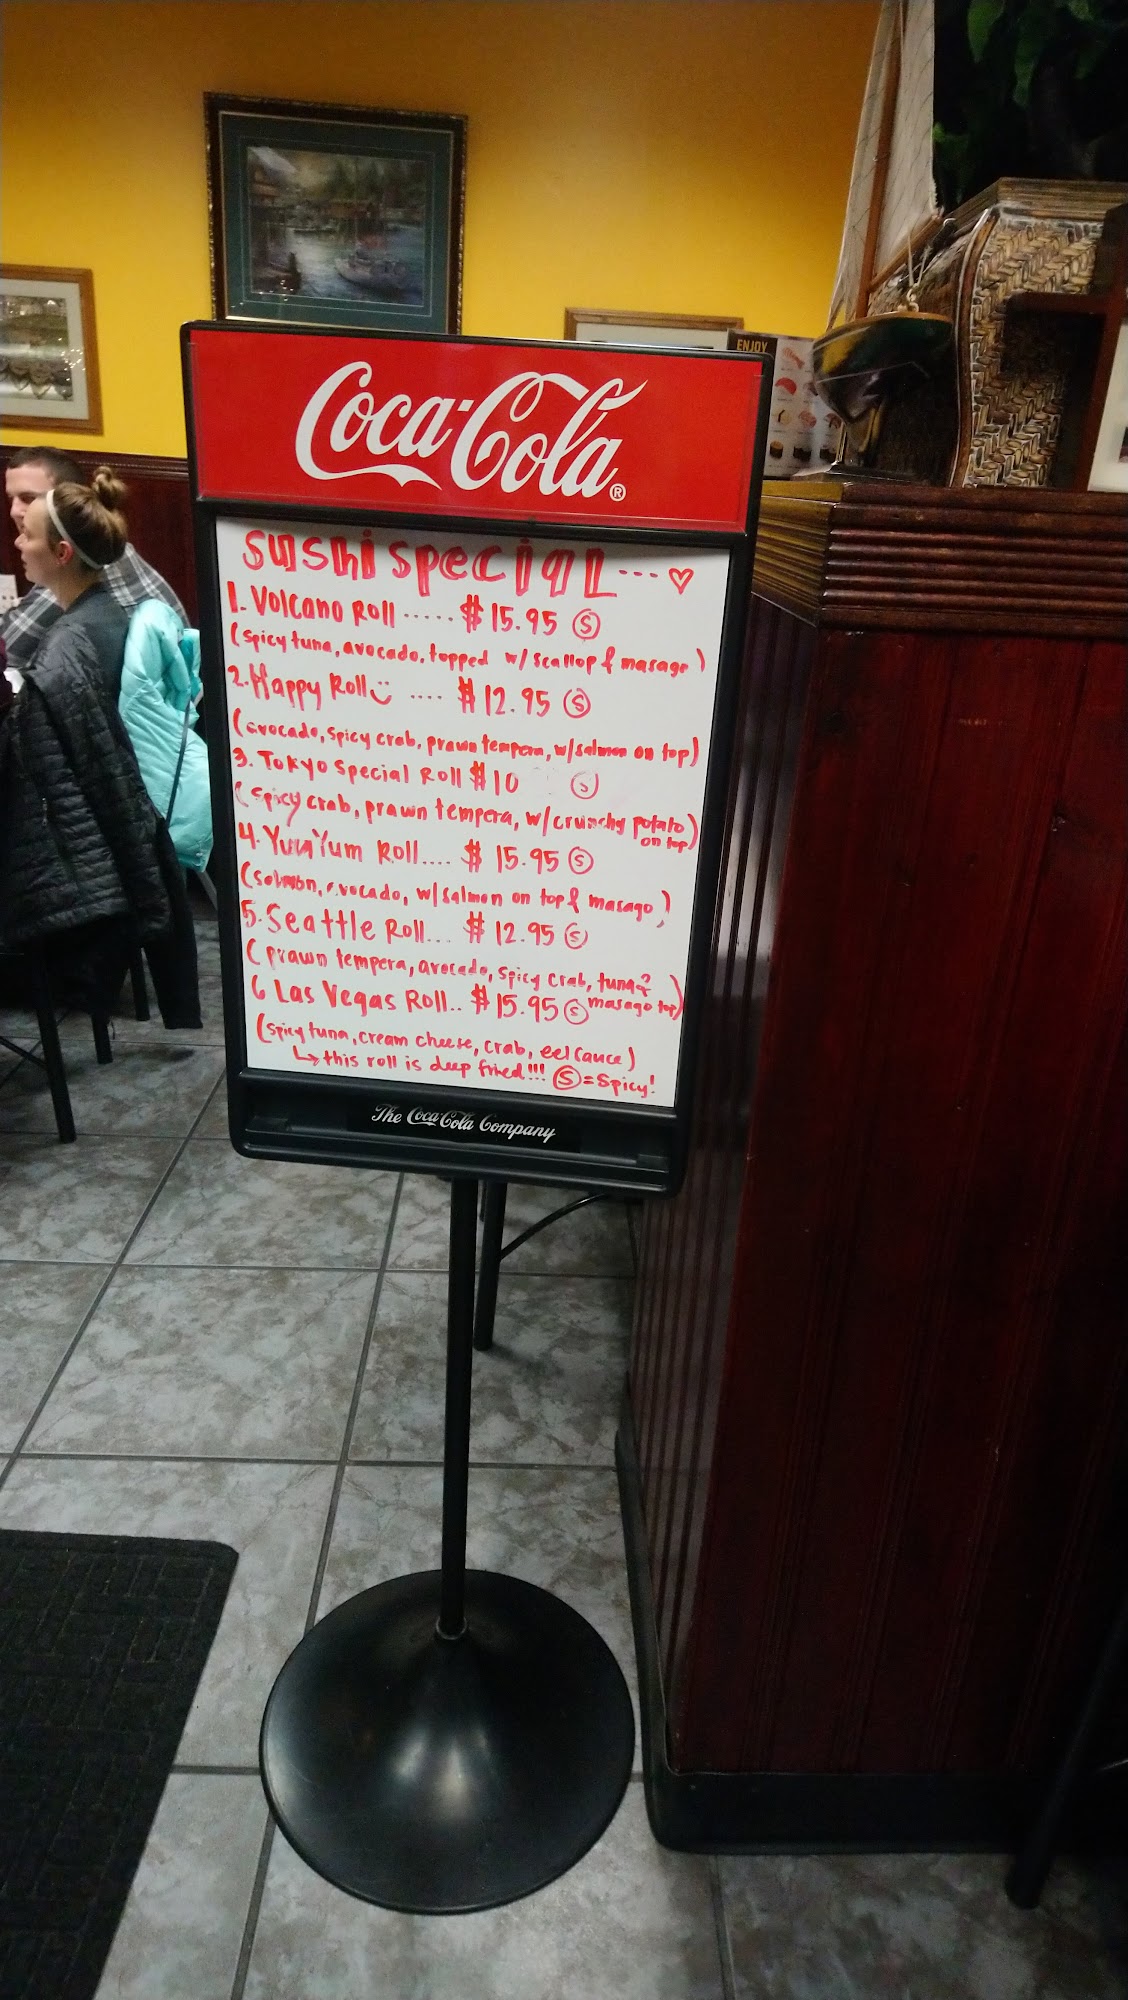 ENJOY
Coca-Cola®
Sushi Special --- ♡
1. Volcano Roll ..... $15.95 Ⓢ
(spicy tuna, avocado, topped w/ scallop & masago)
2. Happy Roll ..... $12.95 Ⓢ
(avocado, spicy crab, prawn tempera, w/salmon on top)
3. Tokyo Special Roll $10 Ⓢ
(spicy crab, prawn tempera, w/crunchy potato
on top)
4. YumYum Roll.... $15.95 Ⓢ
(salmon, avocado, w/salmon on top & masago)
5. Seattle Roll... $12.95 Ⓢ
(prawn tempera, avocado, spicy crab, tuna &
masago top)
6 Las Vegas Roll.. $15.95 Ⓢ
(spicy tuna, cream cheese, crab, eel sauce)
↳ this roll is deep fried!!! Ⓢ = spicy!
The Coca-Cola Company